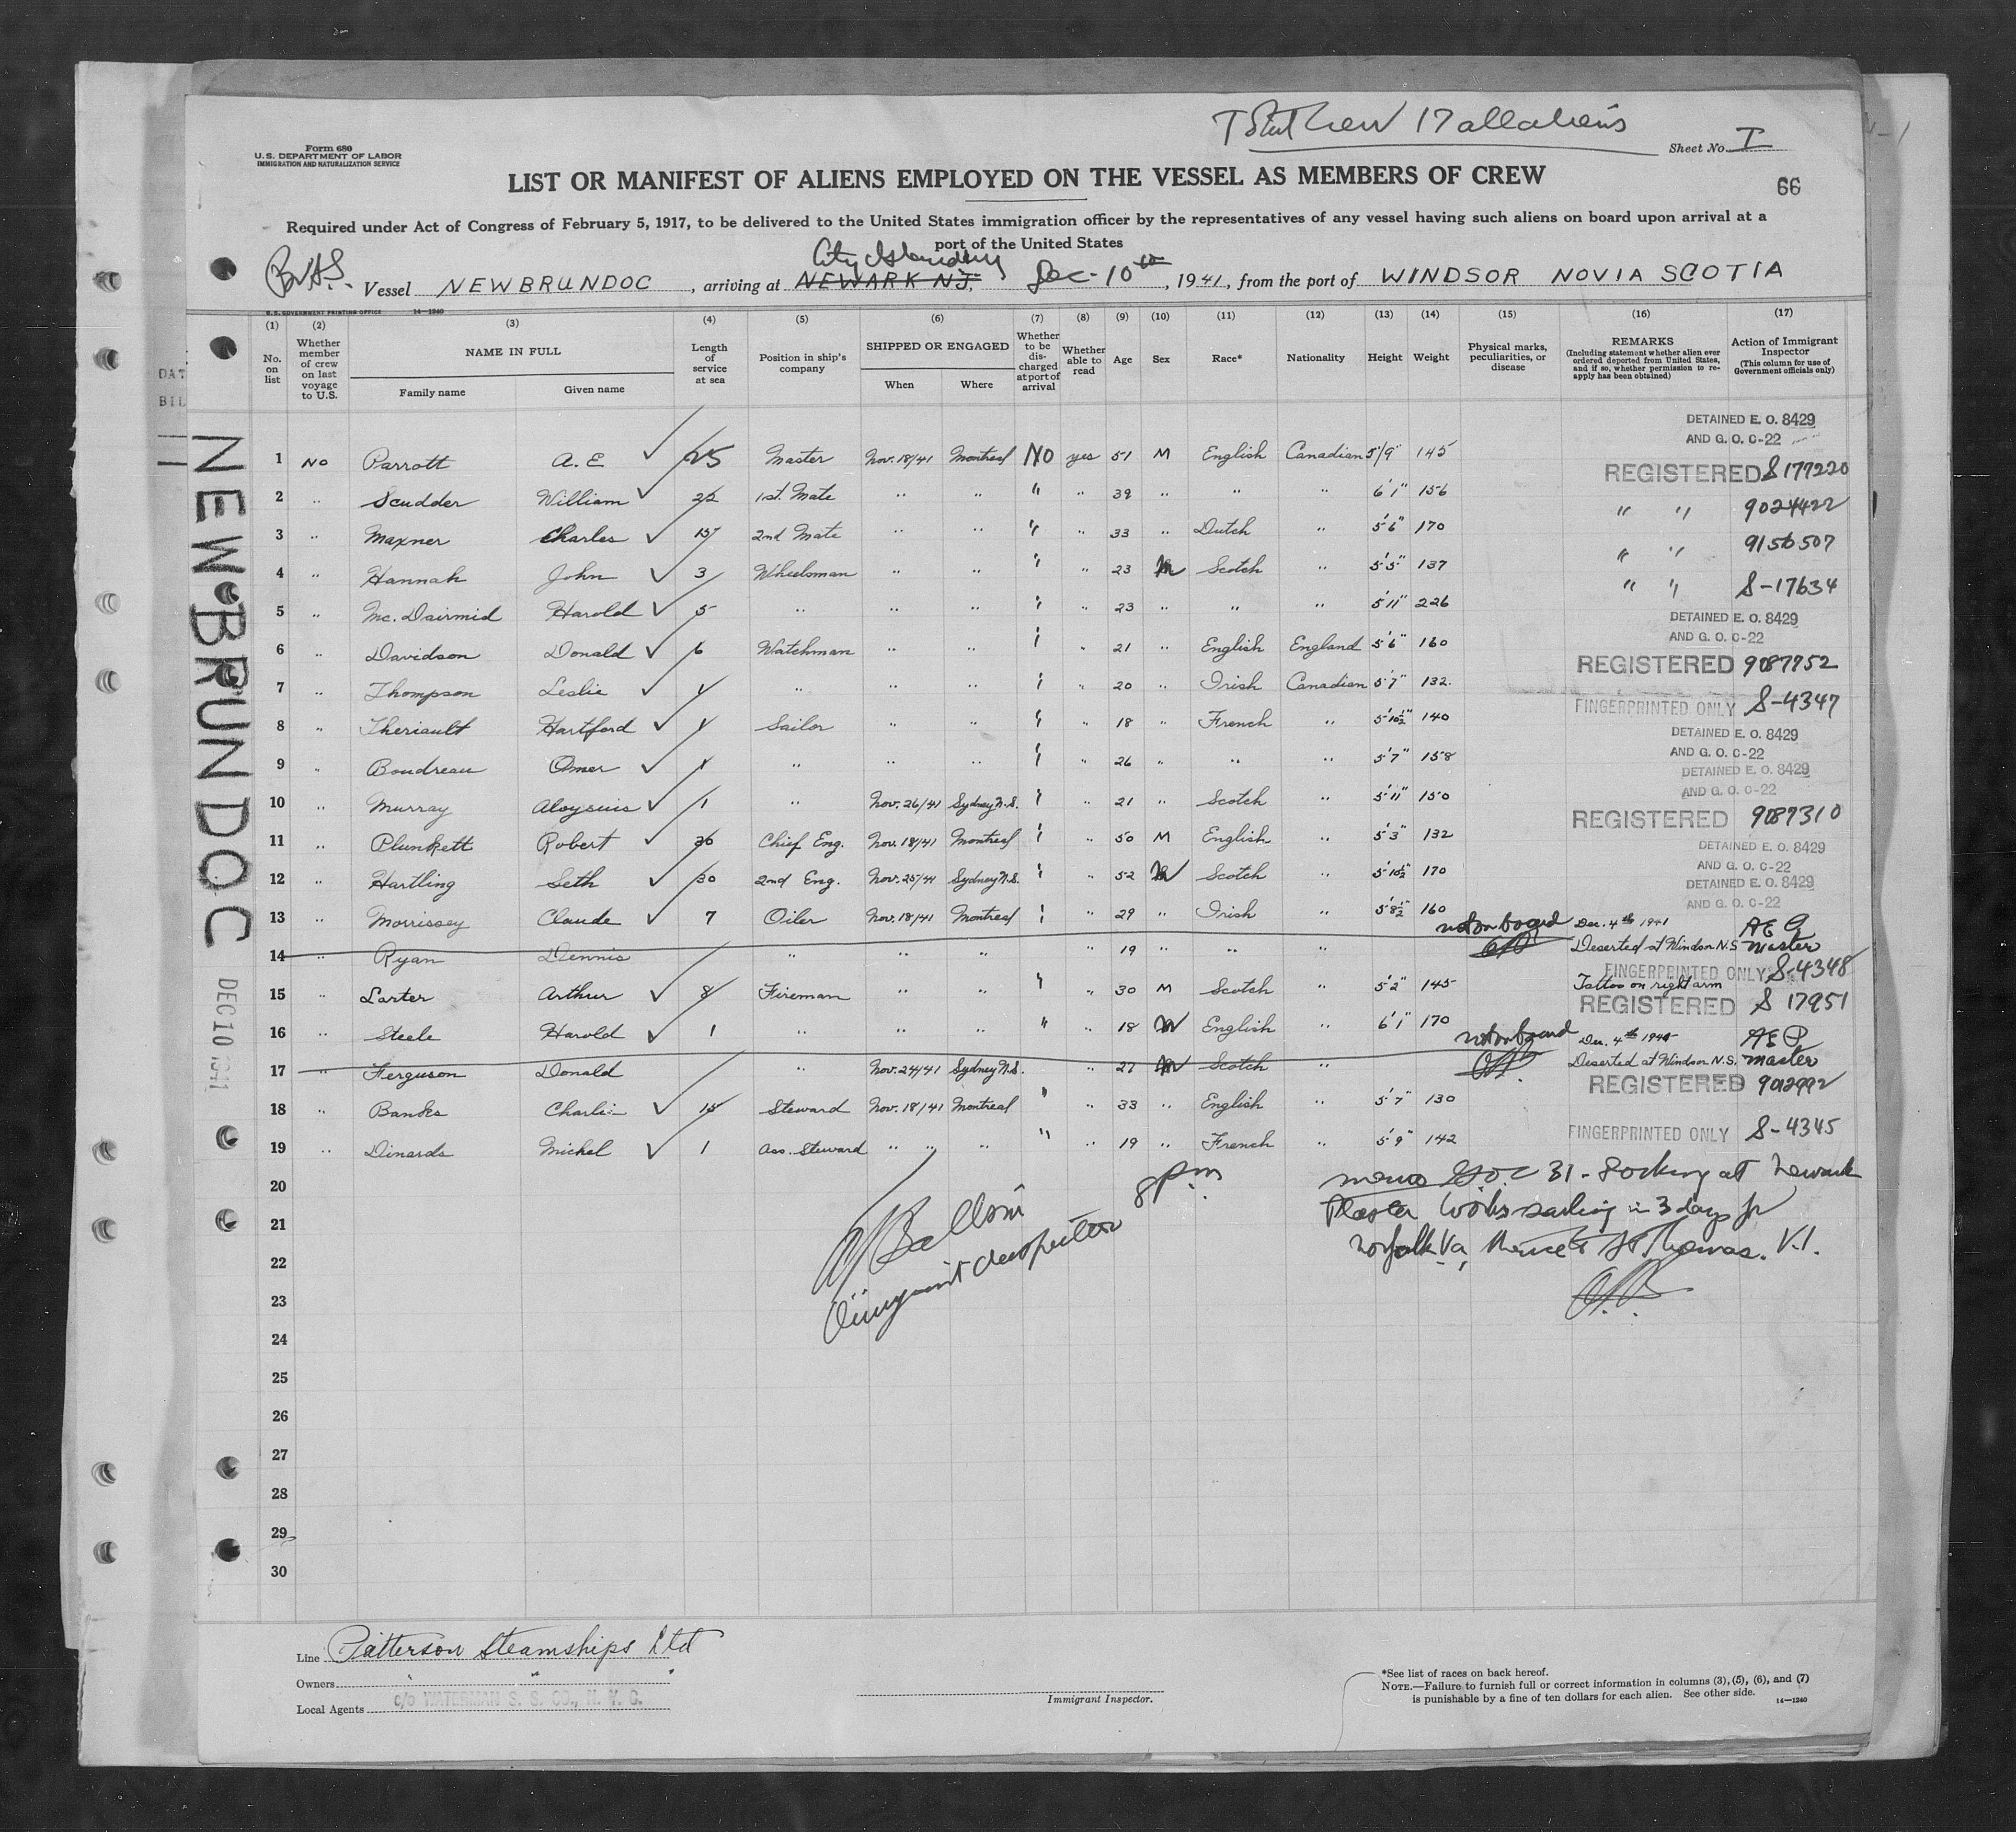 Total Crew 17 all aliens
Form 680
U.S. DEPARTMENT OF LABOR
IMMIGRATION AND NATURALIZATION SERVICE
Sheet No. I
LIST OR MANIFEST OF ALIENS EMPLOYED ON THE VESSEL AS MEMBERS OF CREW
66
Required under Act of Congress of February 5, 1917, to be delivered to the United States immigration officer by the representatives of any vessel having such aliens on board upon arrival at a
port of the United States
City Island NY
Vessel NEWBRUNDOC, arriving at NEWARK NJ, Dec-10th, 1941, from the port of WINDSOR NOVIA SCOTIA
U.S. GOVERNMENT PRINTING OFFICE 14-1240
(1) (2) (3) (4) (5) (6) (7) (8) (9) (10) (11) (12) (13) (14) (15) (16) (17)
No. on list
Whether member of crew on last voyage to U.S.
NAME IN FULL
Family name
Given name
Length of service at sea
Position in ship's company
SHIPPED OR ENGAGED
When
Where
Whether to be discharged at port of arrival
Whether able to read
Age
Sex
Race*
Nationality
Height
Weight
Physical marks, peculiarities, or disease
REMARKS
(Including statement whether alien ever ordered deported from United States, and if so, whether permission to re-apply has been obtained)
Action of Immigrant Inspector
(This column for use of Government officials only)
DETAINED E. O. 8429
AND G. O. C-22
1 No Parrott A. E 25 Master Nov. 18/41 Montreal NO yes 51 M English Canadian 5'9" 145
REGISTERED S 177220
2 " Scudder William 22 1st. Mate " " " " 39 " " " 6'1" 156
" " 9024422
3 " Maxner Charles 15 2nd Mate " " " " 33 " Dutch " 5'6" 170
" " 9156507
4 " Hannah John 3 Wheelsman " " " " 23 M Scotch " 5'5" 137
" " S-17634
5 " Mc. Dairmid Harold 5 " " " " " 23 " " " 5'11" 226
DETAINED E. O. 8429
AND G. O. C-22
6 " Davidson Donald 6 Watchman " " " " 21 " English England 5'6" 160
REGISTERED 9087752
7 " Thompson Leslie 1 " " " " " 20 " Irish Canadian 5'7" 132
FINGERPRINTED ONLY S-4347
8 " Theriault Hartford 1 Sailor " " " " 18 " French " 5'10½" 140
DETAINED E. O. 8429
AND G. O. C-22
9 " Boudreau Omer 1 " " " " " 26 " " " 5'7" 158
DETAINED E. O. 8429
AND G. O. C-22
10 " Murray Aloysuis 1 " Nov. 26/41 Sydney N.S. " " 21 " Scotch " 5'11" 150
REGISTERED 9087310
11 " Plunkett Robert 36 Chief Eng. Nov. 18/41 Montreal " " 50 M English " 5'3" 132
DETAINED E. O. 8429
AND G. O. C-22
12 " Hartling Seth 30 2nd Eng. Nov. 25/41 Sydney N.S. " " 52 M Scotch " 5'10½" 170
DETAINED E. O. 8429
AND G. O. C-22
13 " Morrissey Claude 7 Oiler Nov. 18/41 Montreal " " 29 " Irish " 5'8½" 160
not on board Dec. 4th 1941
14 " Ryan Dennis " " " " 19 " " " Deserted at Windsor N.S. Master
FINGERPRINTED ONLY S-4348
15 " Larter Arthur 8 Fireman " " " " 30 M Scotch " 5'2" 145 Tattoo on right arm
REGISTERED S 17951
16 " Steele Harold 1 " " " " " 18 M English " 6'1" 170
not on board Dec. 4th 1941 A E P
17 " Ferguson Donald " Nov. 24/41 Sydney N.S. " 27 M Scotch " Deserted at Windsor N.S. Master
REGISTERED 9012992
18 " Banks Charlie 15 Steward Nov. 18/41 Montreal " " 33 " English " 5'7" 130
FINGERPRINTED ONLY S-4345
19 " Dinards Michel 1 Ass. Steward " " " " " 19 " French " 5'9" 142
20
21
22
23
24
25
26
27
28
29
30
8 Pm
Immigrant Inspector
Memo G.O.C 31 - Docking at Newark
Plaster Works sailing in 3 days for
Norfolk Va, thence to St Thomas. V.I.
NEWBRUNDOC
DEC 10 1941
Line Patterson Steamships Ltd
Owners " " "
Local Agents c/o WATERMAN S. S. CO., N. Y. C.
Immigrant Inspector.
*See list of races on back hereof.
NOTE.—Failure to furnish full or correct information in columns (3), (5), (6), and (7)
is punishable by a fine of ten dollars for each alien. See other side.
14—1240